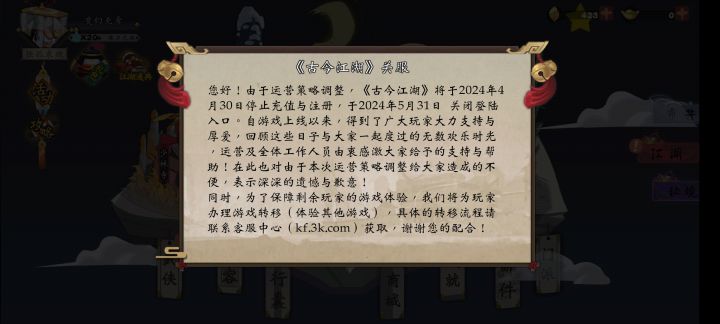 《古今江湖》关服
您好！由于运营策略调整，《古今江湖》将于2024年4
月30日停止充值与注册，于2024年5月31日 关闭登陆
入口。自游戏上线以来，得到了广大玩家大力支持与
厚爱，回顾这些日子与大家一起度过的无数欢乐时光
，运营及全体工作人员由衷感激大家给予的支持与帮
助！在此也对由于本次运营策略调整给大家造成的不
便，表示深深的遗憾与歉意！
同时，为了保障剩余玩家的游戏体验，我们将为玩家
办理游戏转移（体验其他游戏），具体的转移流程请
联系客服中心（kf.3k.com）获取，谢谢您的配合！
433
0
江湖
侠
容
行囊
商城
就
邮件